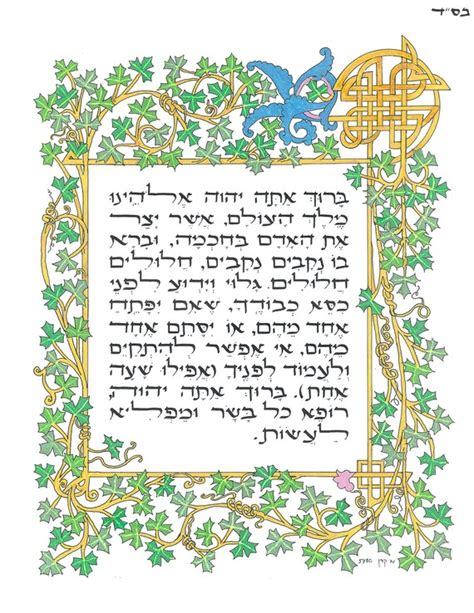 בס"ד
ברוך אתה יהוה אלהינו
מלך העולם, אשר יצר
את האדם בחכמה, וברא
בו נקבים נקבים, חלולים
חלולים. גלוי וידוע לפני
כסא כבודך, שאם יפתח
אחד מהם, או יסתם אחד
מהם, אי אפשר להתקים
ולעמוד לפניך (אפילו שעה
אחת). ברוך אתה יהוה,
רופא כל בשר ומפליא
לעשות.